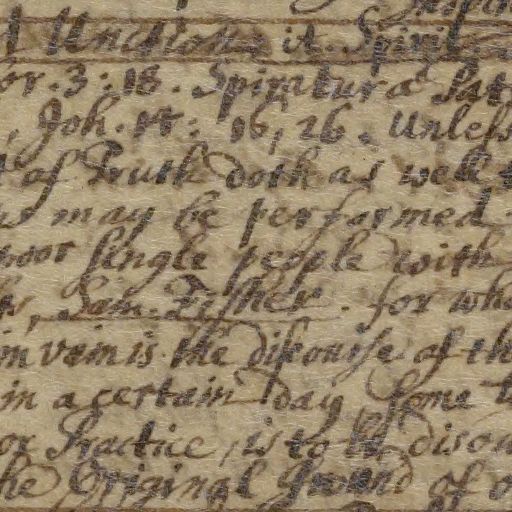 Unction it. Spirit
or. 3: 18. Spiritura Sat
, Joh. 14: 16, 26. Unless
of Truth doth as well t
us may be performed
poor single people with
, Sam: Fisher. for wha
im vain is the discourse of th
in a certain day, some t
or Practice, is to be disco
he Original Ground of o